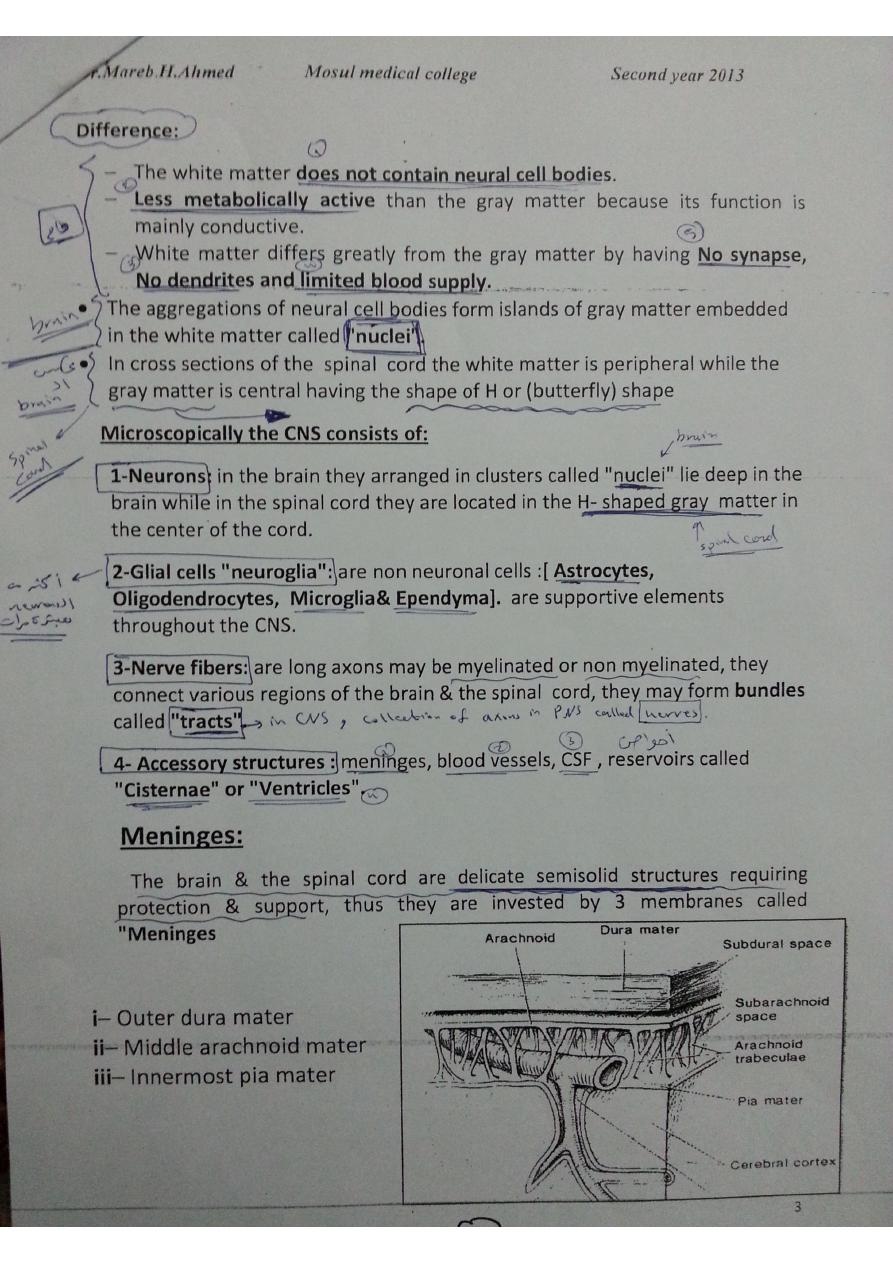 r.Mareb.H.Ahmed Mosul medical college Second year 2013
Difference:
– The white matter does not contain neural cell bodies.
– Less metabolically active than the gray matter because its function is
mainly conductive.
– White matter differs greatly from the gray matter by having No synapse,
No dendrites and limited blood supply.
• The aggregations of neural cell bodies form islands of gray matter embedded
brain
in the white matter called "nuclei".
• In cross sections of the spinal cord the white matter is peripheral while the
brain
gray matter is central having the shape of H or (butterfly) shape
Spinal
cord
Microscopically the CNS consists of:
brain
1-Neurons: in the brain they arranged in clusters called "nuclei" lie deep in the
brain while in the spinal cord they are located in the H- shaped gray matter in
the center of the cord.
spinal cord
2-Glial cells "neuroglia": are non neuronal cells :[ Astrocytes,
Oligodendrocytes, Microglia& Ependyma]. are supportive elements
throughout the CNS.
3-Nerve fibers: are long axons may be myelinated or non myelinated, they
connect various regions of the brain & the spinal cord, they may form bundles
called "tracts" → in CNS , collection of axons in PNS called nerves.
4- Accessory structures : meninges, blood vessels, CSF , reservoirs called
"Cisternae" or "Ventricles".
Meninges:
The brain & the spinal cord are delicate semisolid structures requiring
protection & support, thus they are invested by 3 membranes called
"Meninges
i– Outer dura mater
ii– Middle arachnoid mater
iii– Innermost pia mater
Arachnoid
Dura mater
Subdural space
Subarachnoid
space
Arachnoid
trabeculae
Pia mater
Cerebral cortex
3